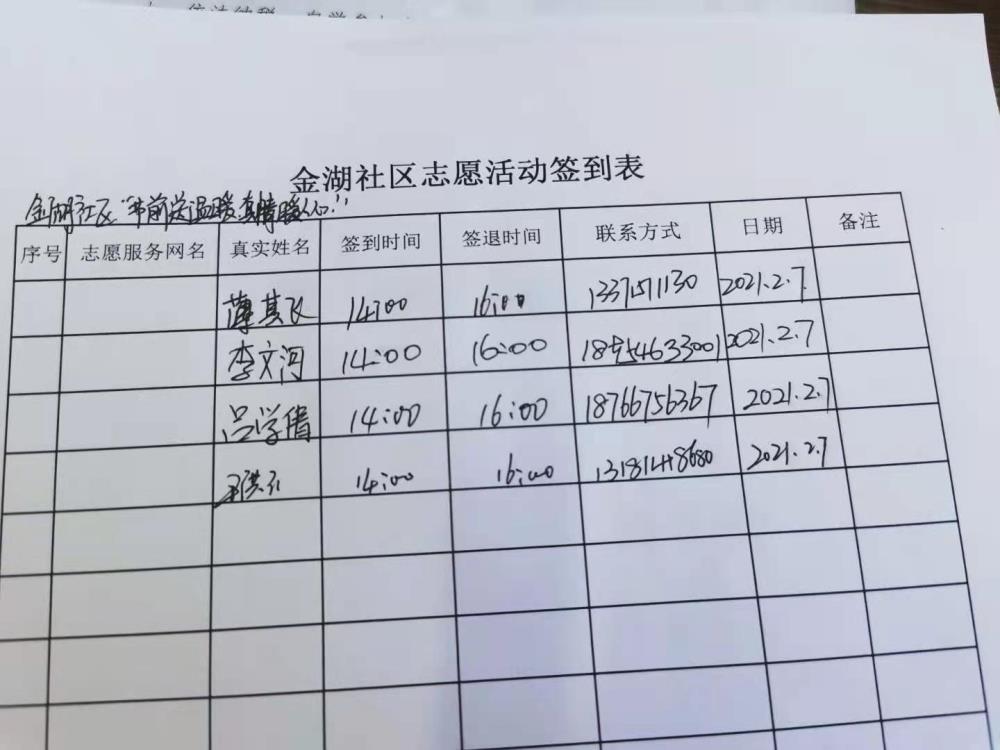 金湖社区志愿活动签到表
金湖社区"节前送温暖 真情暖人心!"
序号 志愿服务网名 真实姓名 签到时间 签退时间 联系方式 日期 备注
薄其飞 14:00 16:00 2021.2.7
李文河 14:00 16:00 2021.2.7
吕学倩 14:00 16:00 18766756367 2021.2.7
14:00 16:00 2021.2.7